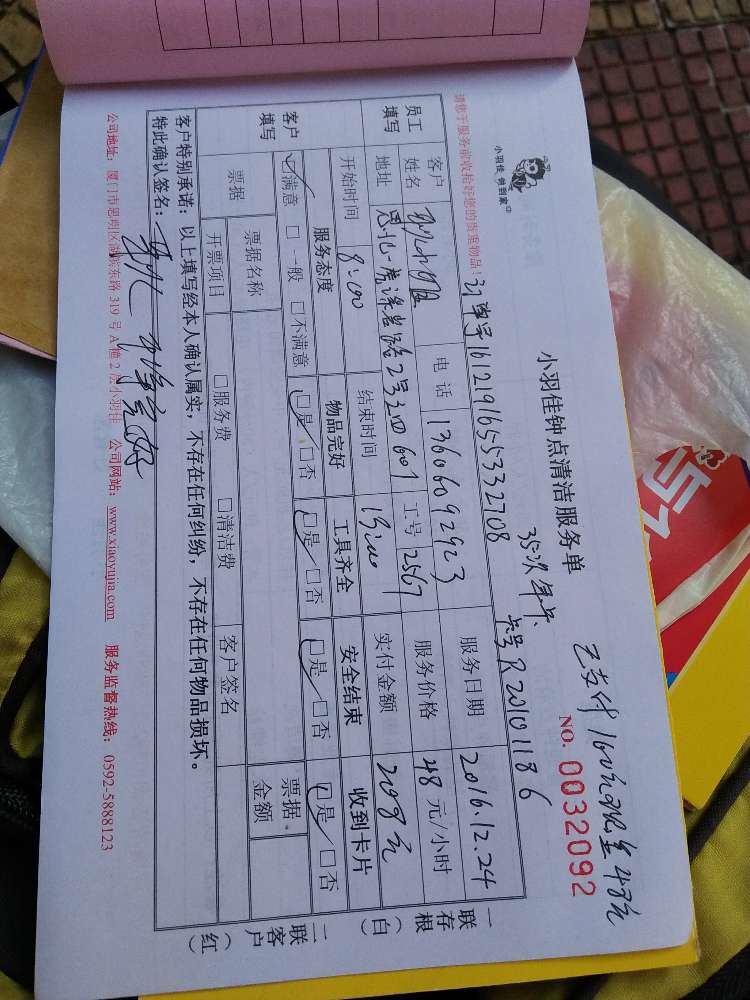 小羽佳 帮到家
小羽佳钟点清洁服务单
NO. 0032092
已支付160元现金48元
35次年卡
卡号R20101186
请您于服务前收拾好您的贵重物品！订单号1612191655332708
员工填写
客户姓名
电话 13606092923
服务日期 2016.12.24
地址
工号 2567
服务价格 48 元/小时
开始时间 8:00
结束时间
实付金额 208元
客户填写
服务态度 物品完好 工具齐全 安全结束 收到卡片
☑满意 □一般 □不满意 ☑是 □否 ☑是 □否 ☑是 □否 ☑是 □否
票据 票据名称 票据金额
开票项目 □服务费 □清洁费 客户签名
客户特别承诺：以上填写经本人确认属实，不存在任何纠纷，不存在任何物品损坏。
特此确认签名：
一联存根（白）
二联客户（红）
公司地址：厦门市思明区湖滨东路 319 号 A 幢 2 层小羽佳 公司网站：www.xiaoyujia.com 服务监督热线：0592-5888123